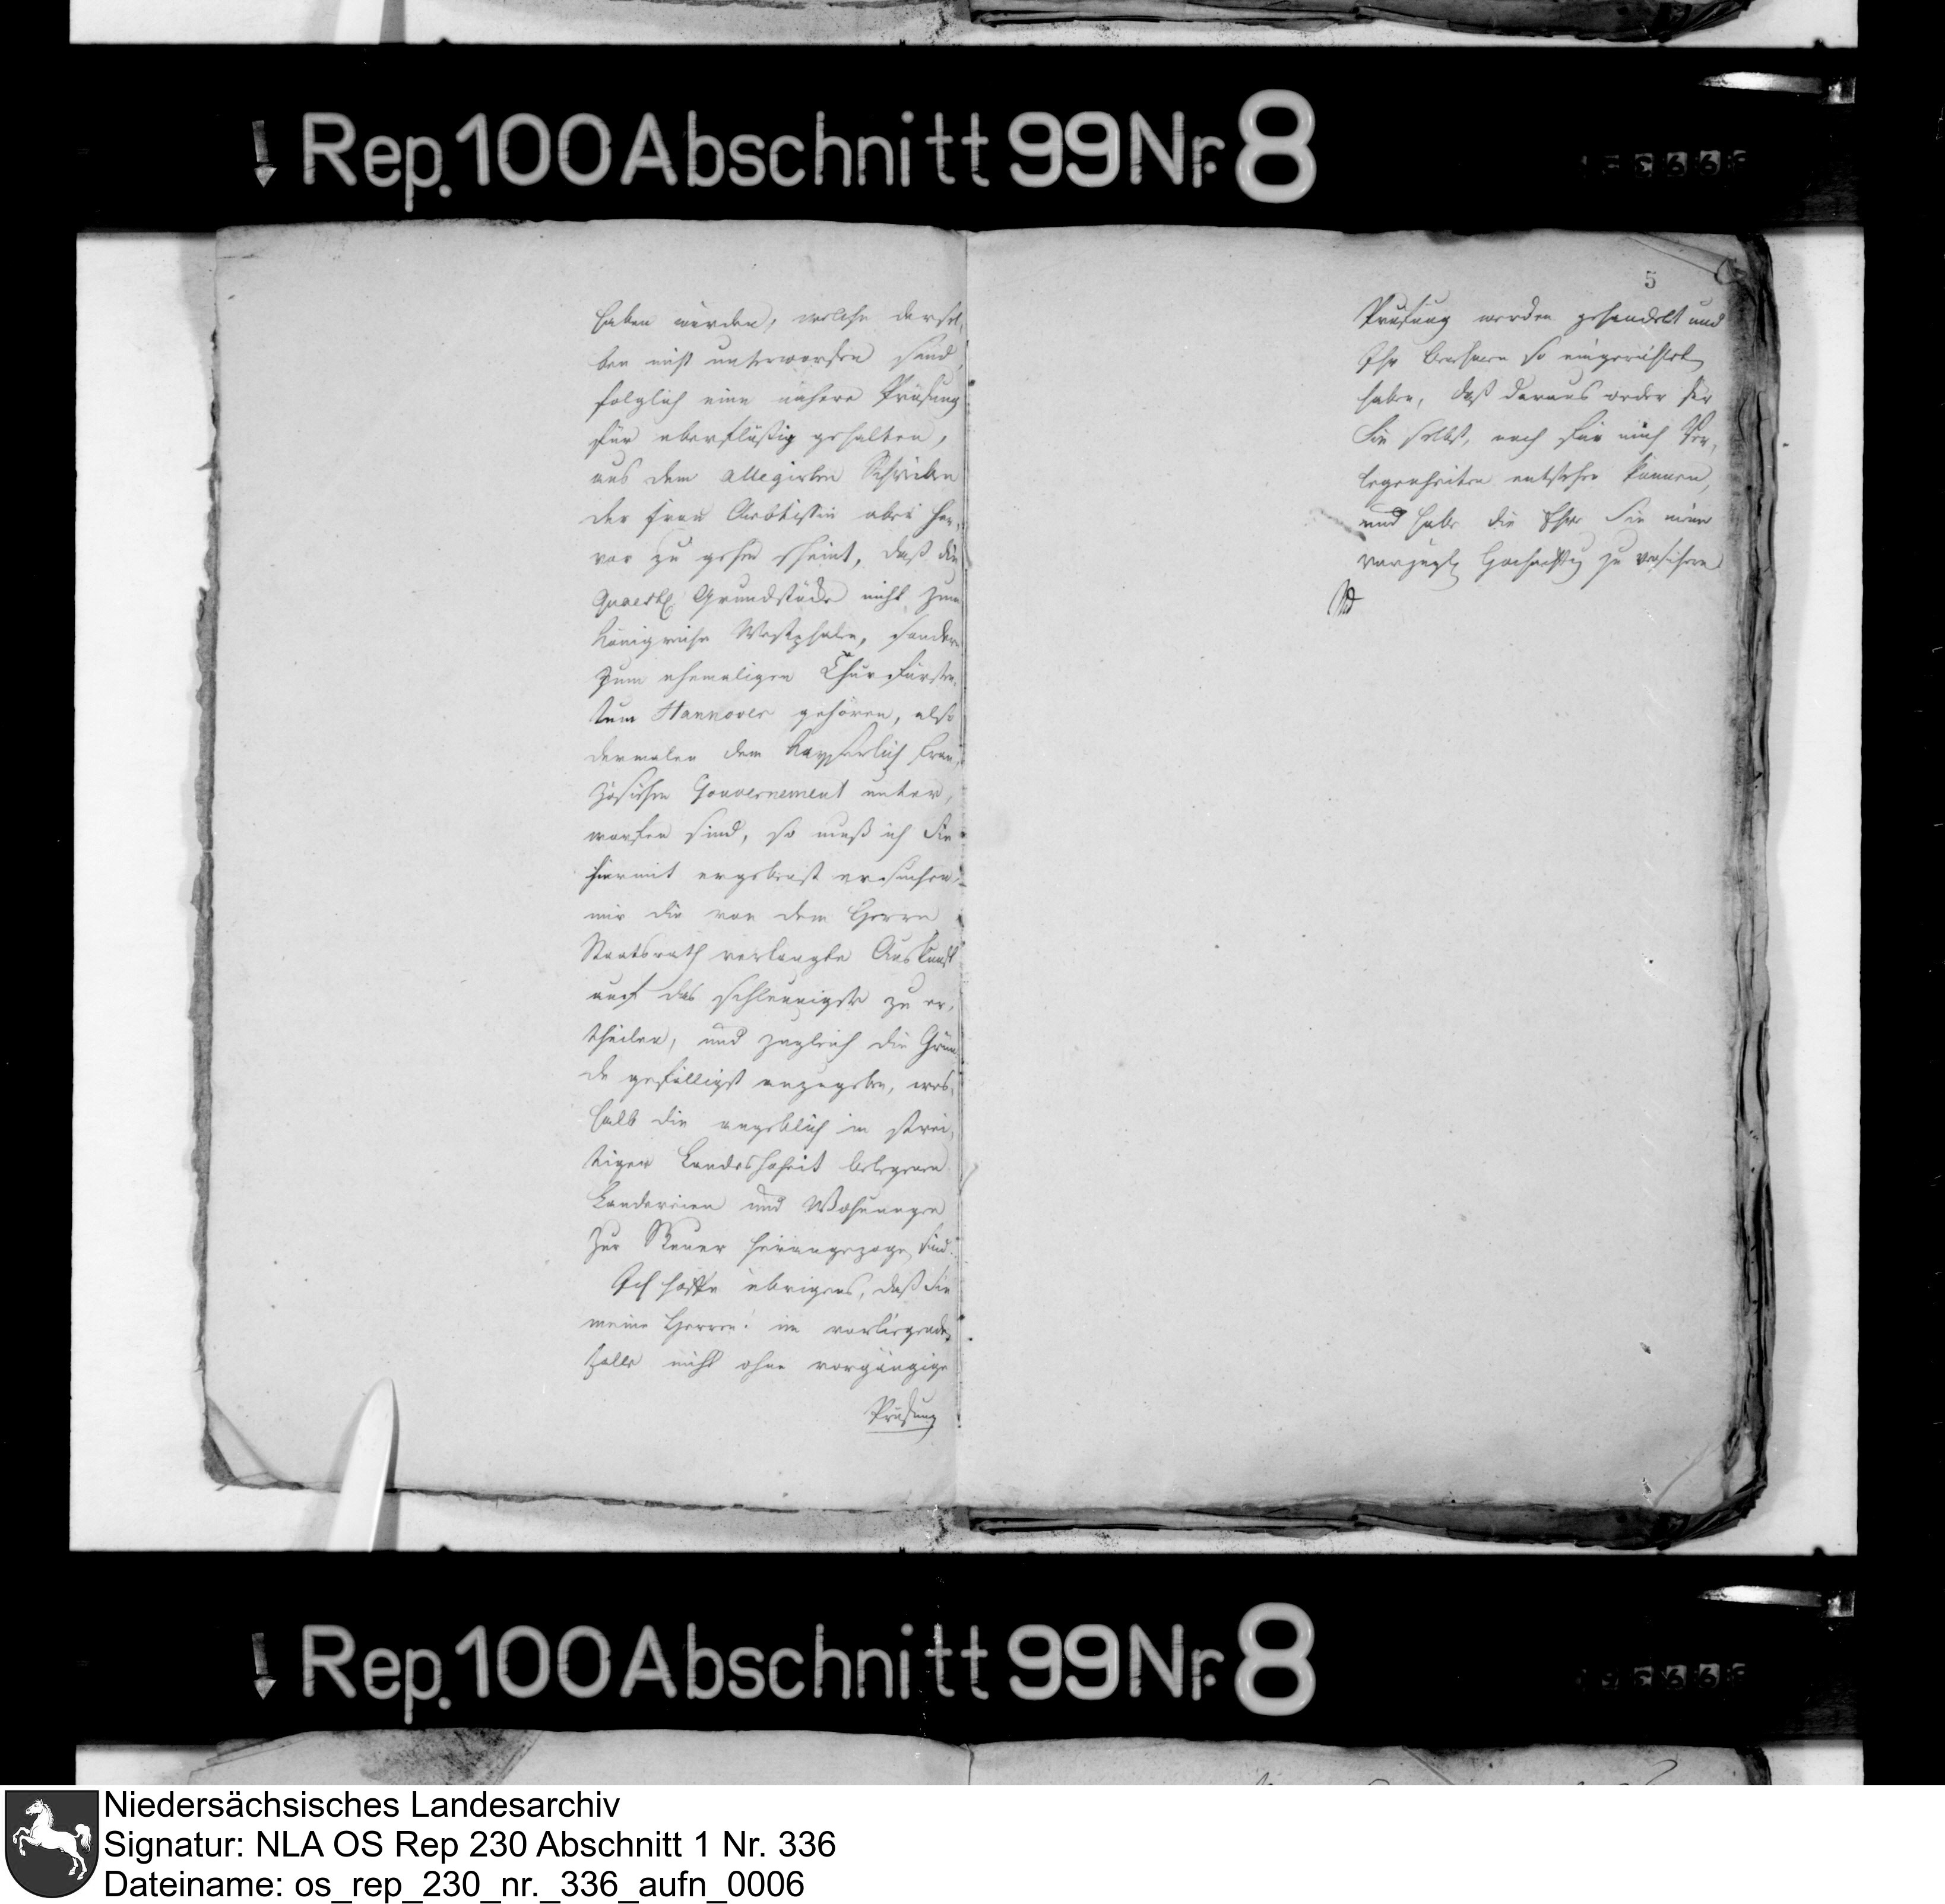 Rep. 100 Abschnitt 99 Nr. 8
haben würden, welche dersel-
ben nicht unterworfen sind,
folglich eine nähere Prüfung
für überflüßig gehalten,
aus dem allegirten Schreiben
der Frau Aebtissin aber her-
vor zu gehen scheint, daß die
quaest. Grundstücke nicht zum
Königreiche Westphalen, sondern
zum ehemaligen Churfürsten-
tum Hannover gehören, also
dermalen dem Kayserlich Fran-
zösischen Gouvernement unter-
worfen sind, so muß ich Sie
hiermit ergebenst ersuchen,
mir die von dem Herrn
Staatsrath verlangte Auskunft
auf das schleunigste zu er-
theilen, und zugleich die Grün-
de gefälligst anzugeben, wes-
halb die angeblich in strei-
tiger Landeshoheit belegenen
Ländereien und Wohnungen
zur Steuer herangezogen sind.
Ich hoffe übrigens, daß Sie
meine Herren! im vorliegenden
Falle nicht ohne vorgängige
Prüfung
5
Prüfung werden gehandelt und
Ihr Verfahren so eingerichtet
haben, daß daraus weder für
Sie selbst, noch für mich Ver-
legenheiten entstehen können,
und habe die Ehre Sie meiner
vorzügl. Hochachtung zu versichern
Rep. 100 Abschnitt 99 Nr. 8
Niedersächsisches Landesarchiv
Signatur: NLA OS Rep 230 Abschnitt 1 Nr. 336
Dateiname: os_rep_230_nr._336_aufn_0006